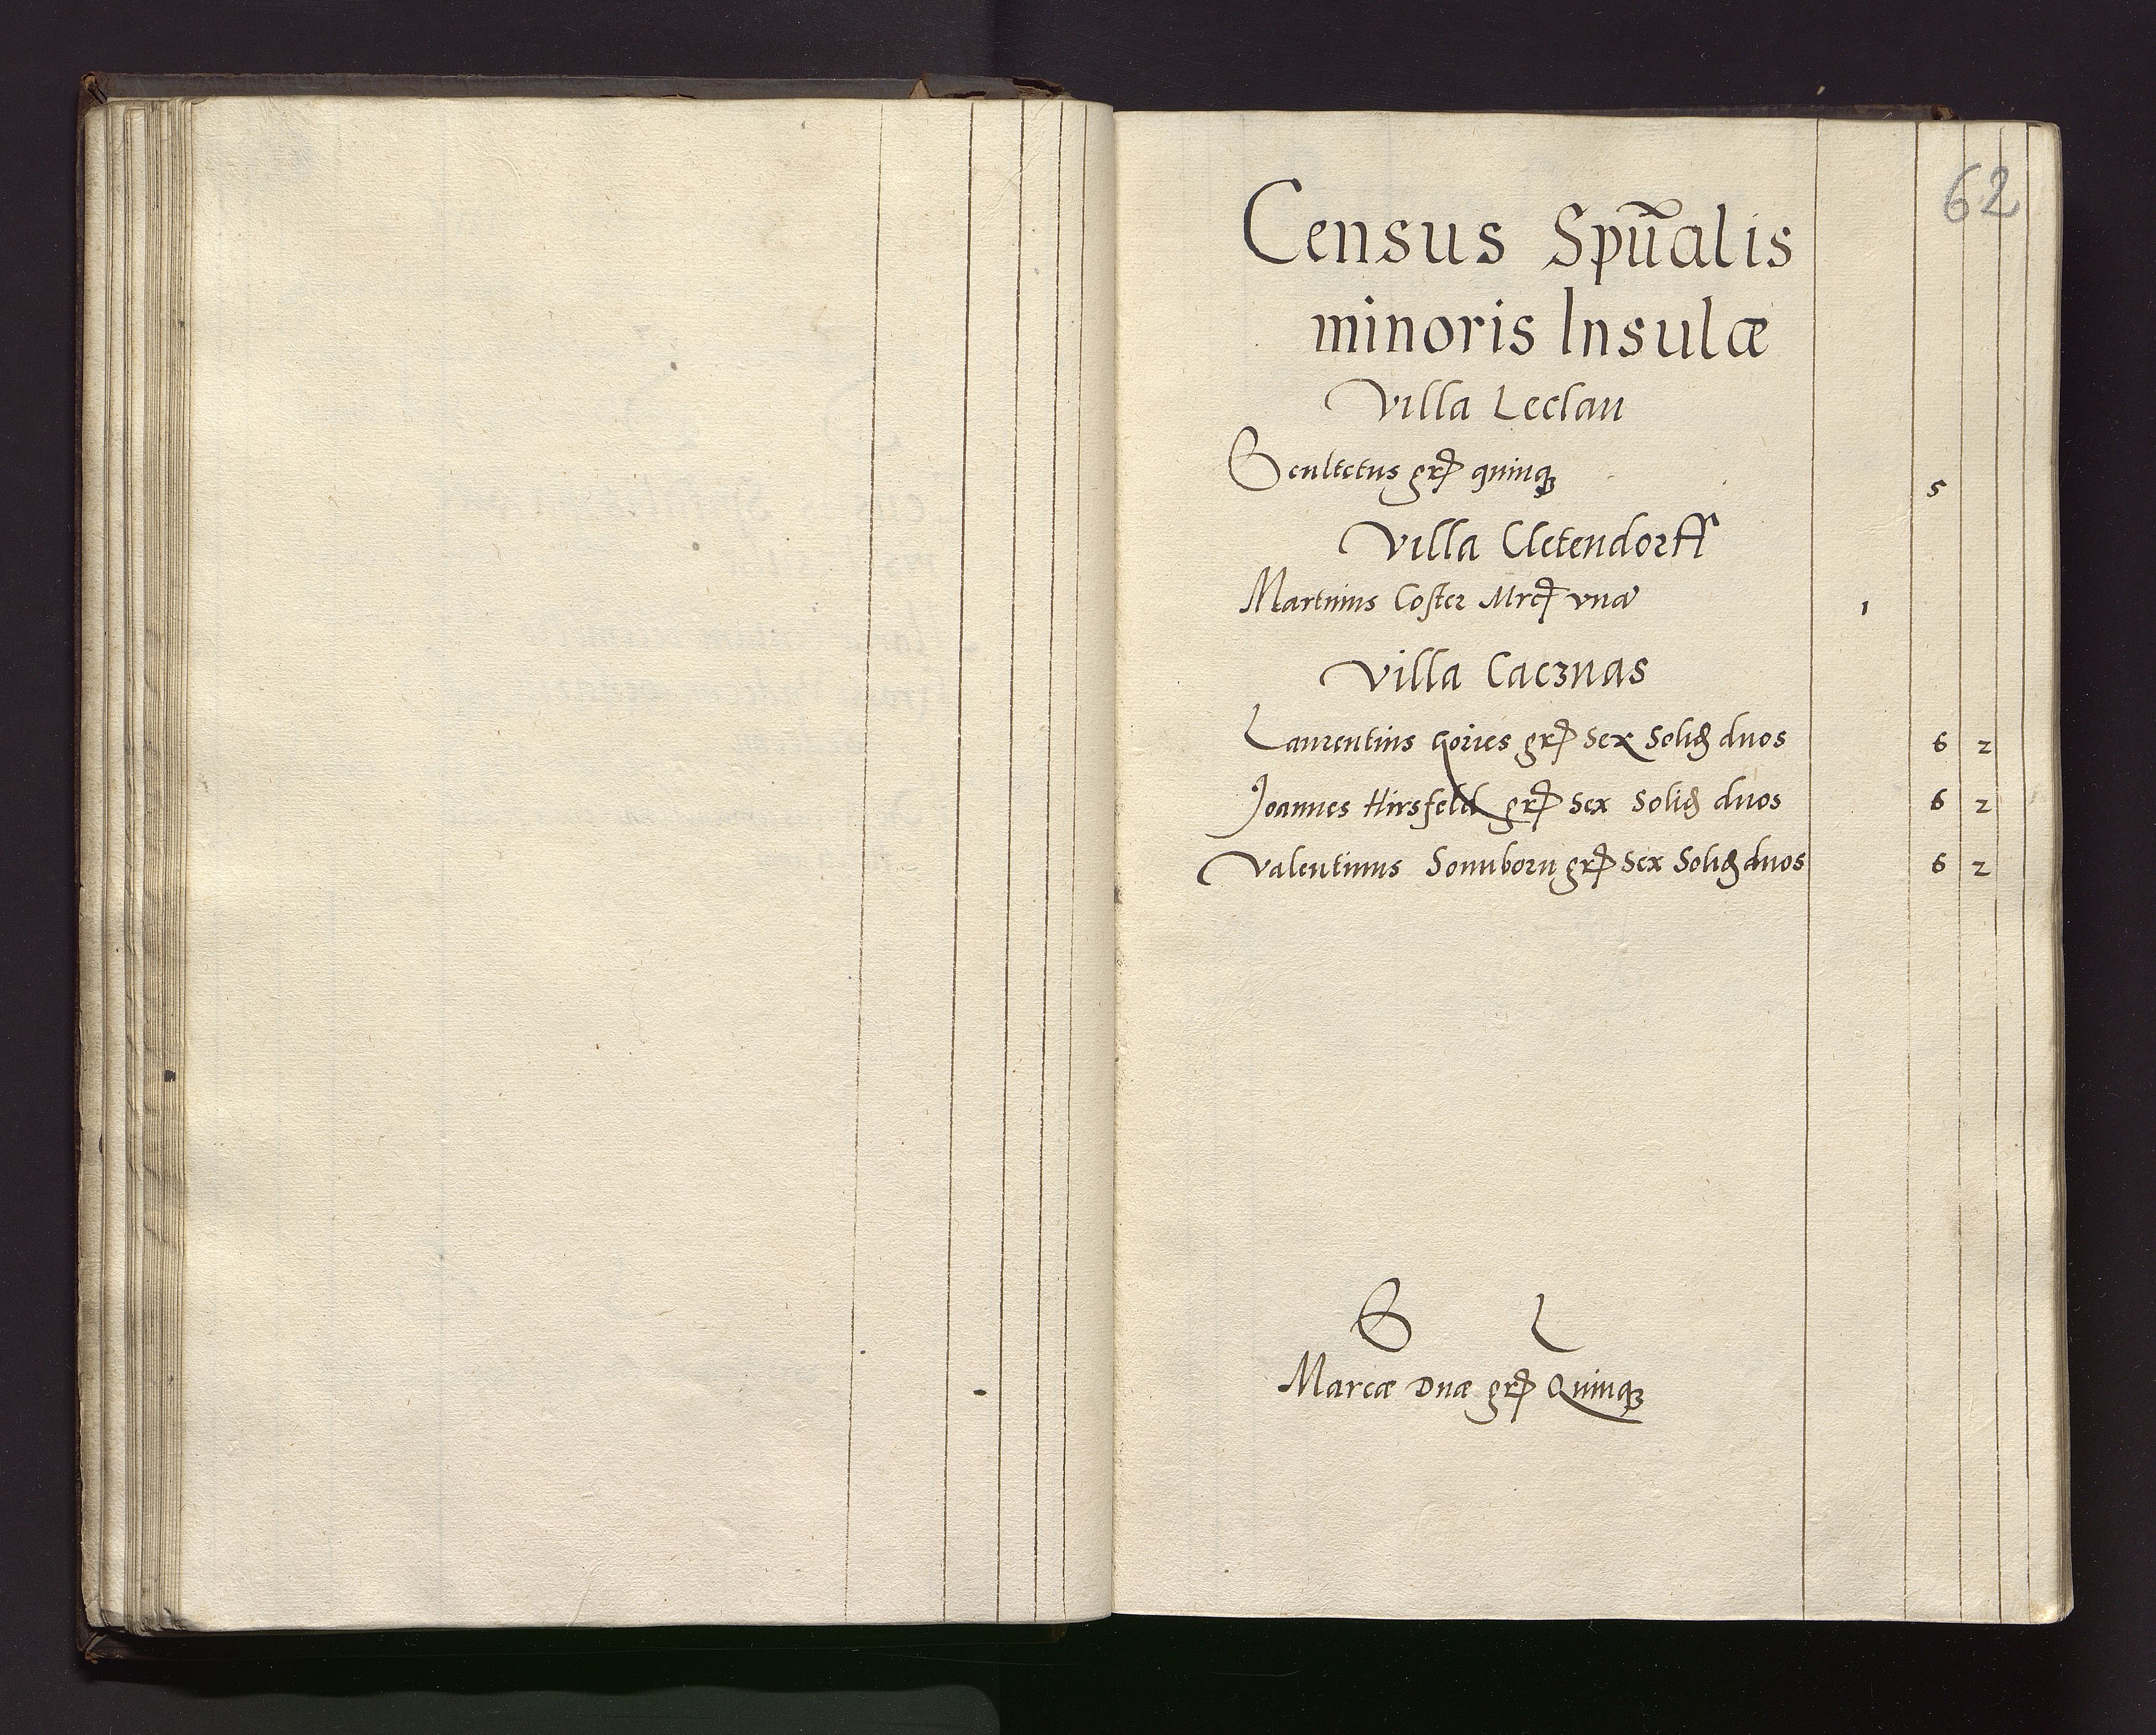 62
Census Spũalis
minoris Insulæ
Villa Leclau
Scultetus grꝭ quinqꝫ 5
Villa Cletendorff
Martinus Coster Mrcꝭ vnã 1
Villa Cacznas
Laurentius Gories grꝭ Sex Solid duos 6 2
Joannes Hirsfeld grꝭ Sex Solid duos 6 2
Valentinus Sonnborn grꝭ Sex Solid duos 6 2
S L
Marcæ Duæ grꝭ Quinqꝫ